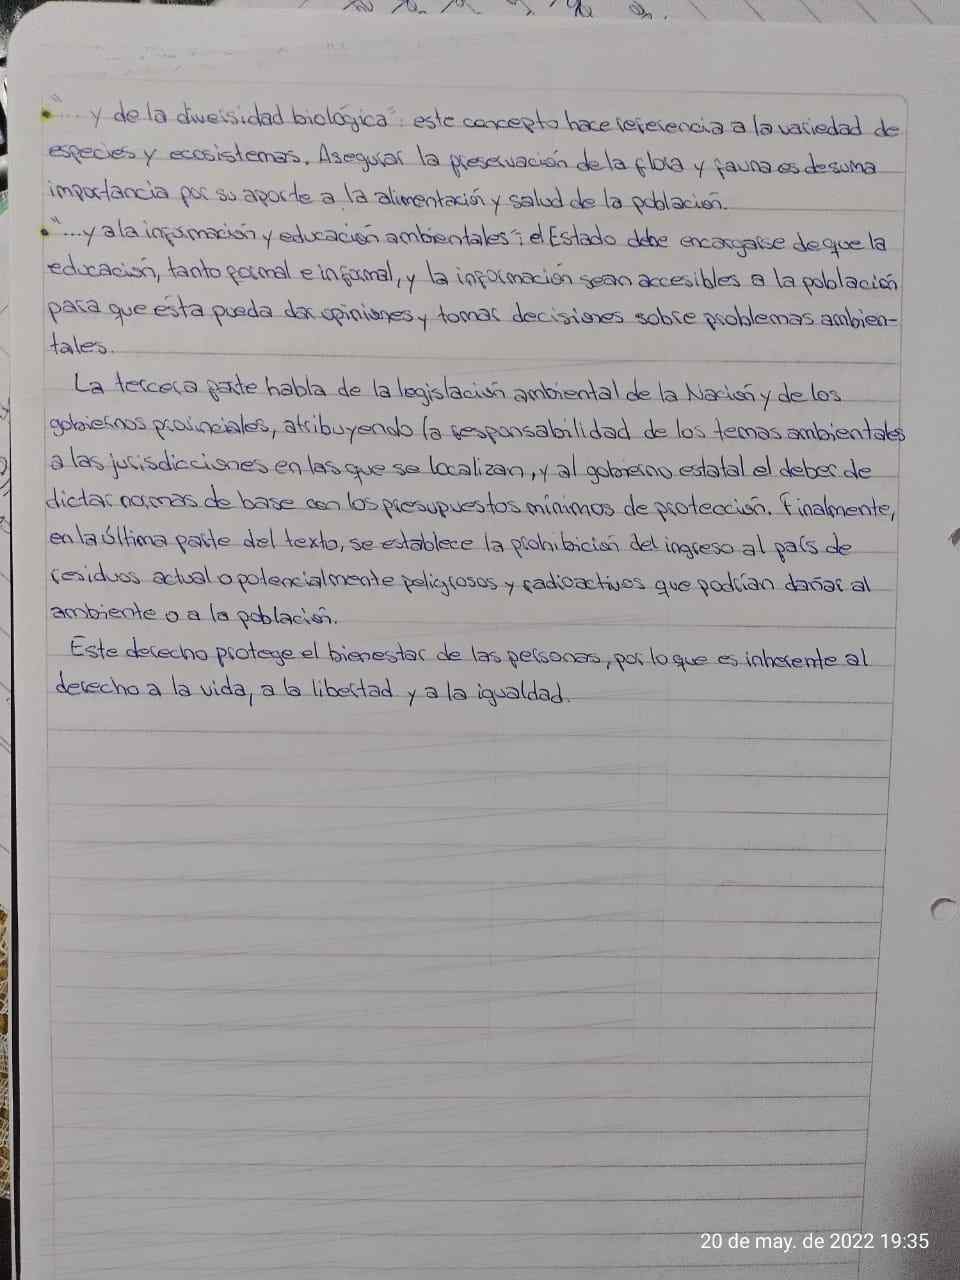 • "... y de la diversidad biológica": este concepto hace referencia a la variedad de
especies y ecosistemas. Asegurar la preservación de la flora y fauna es de suma
importancia por su aporte a la alimentación y salud de la población.
• "... y a la información y educación ambientales": el Estado debe encargarse de que la
educación, tanto formal e informal, y la información sean accesibles a la población
para que ésta pueda dar opiniones y tomar decisiones sobre problemas ambien-
tales.
La tercera parte habla de la legislación ambiental de la Nación y de los
gobiernos provinciales, atribuyendo la responsabilidad de los temas ambientales
a las jurisdicciones en las que se localizan, y al gobierno estatal el deber de
dictar normas de base con los presupuestos mínimos de protección. Finalmente,
en la última parte del texto, se establece la prohibición del ingreso al país de
residuos actual o potencialmente peligrosos y radioactivos que podrían dañar al
ambiente o a la población.
Este derecho protege el bienestar de las personas, por lo que es inherente al
derecho a la vida, a la libertad y a la igualdad.
20 de may. de 2022 19:35